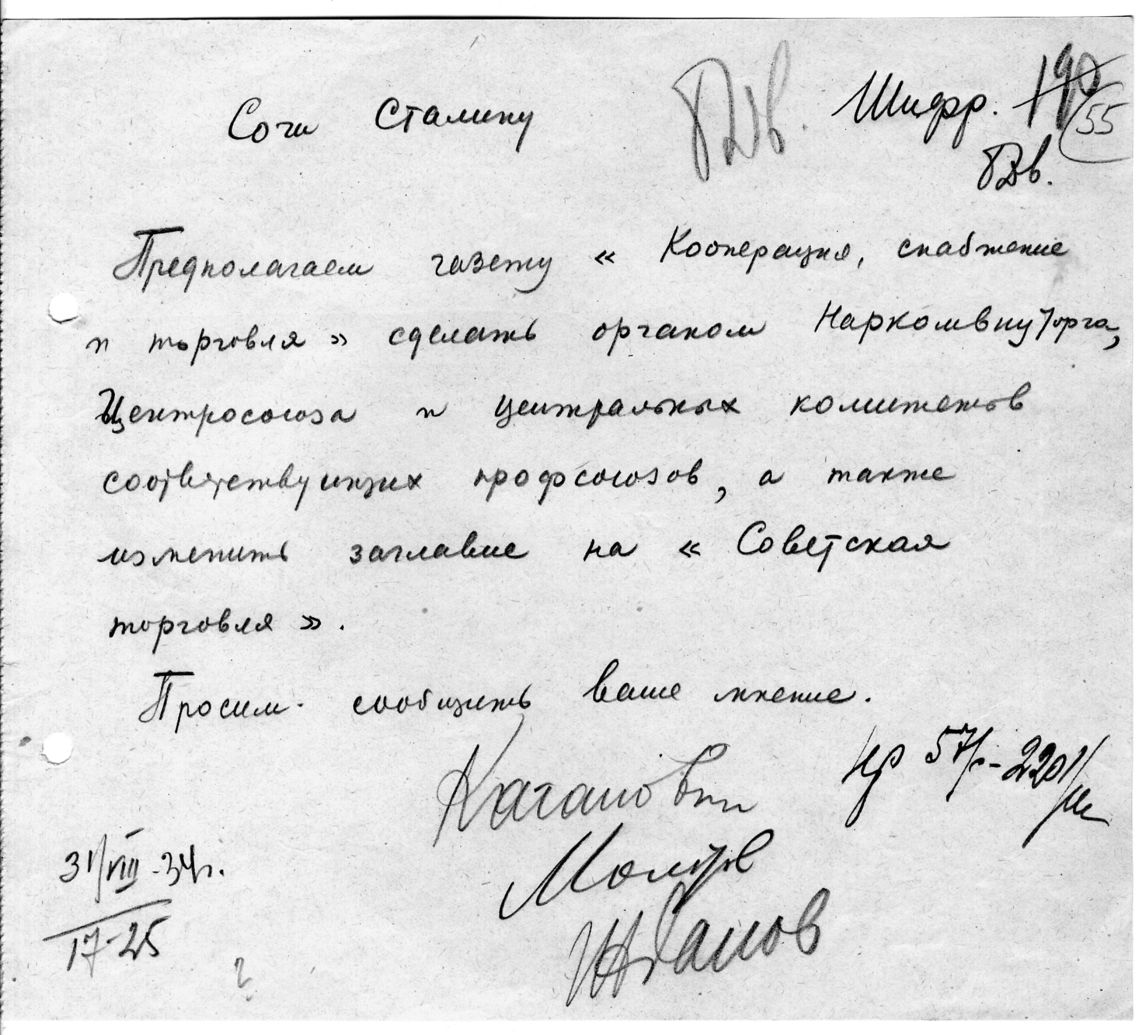 Сочи Сталину
Шифр. 190/55
Предполагаем газету « Кооперация, снабжение
и торговля » сделать органом Наркомвнуторга,
Центросоюза и центральных комитетов
соответствующих профсоюзов, а также
изменить заглавие на « Советская
торговля ».
Просим сообщить ваше мнение.
Каганович
Молотов
Жданов
31/VIII-34г.
17-25